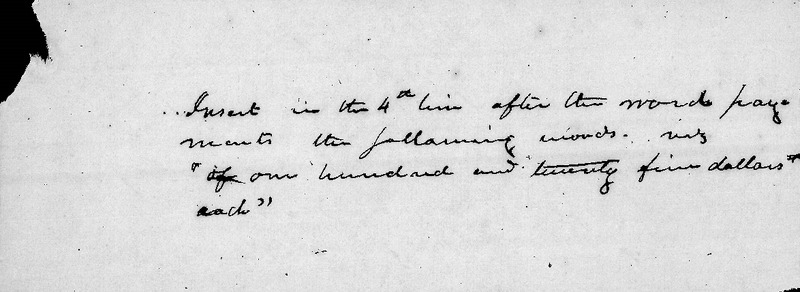 Insert in the 4th line after the words pay-
ments the following words. viz
"of one hundred and twenty five dollars
each"